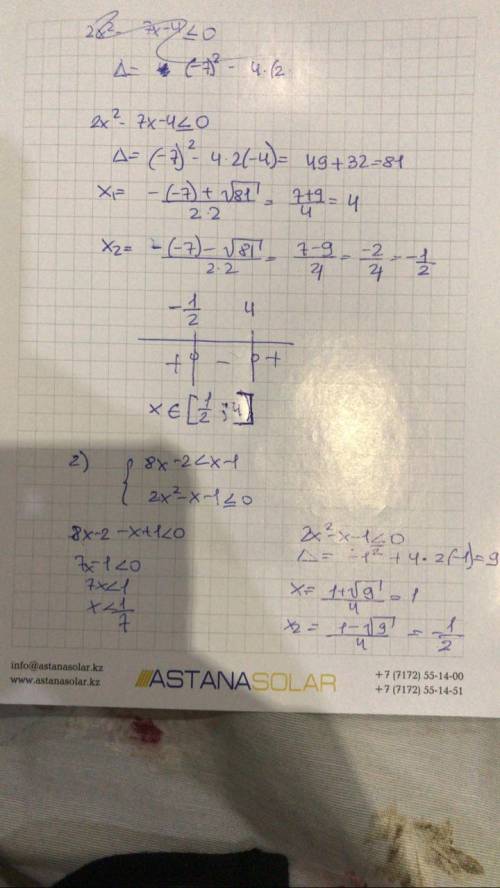 2x² - 7x-4≤0
Δ= (-7)² - 4·(2
2x² - 7x-4≤0
Δ= (-7)² - 4·2(-4)= 49+32=81
x₁= -(-7)+√81 / 2·2 = 7+9 / 4 = 4
x₂= -(-7)-√81 / 2·2 = 7-9 / 4 = -2 / 4 = -1/2
-1/2 4
+ - +
x ∈ [1/2 ; 4]
2) { 8x-2<x-1
2x²-x-1≤0
8x-2-x+1<0
7x-1<0
7x<1
x<1/7
2x²-x-1≤0
Δ= -1² + 4·2(-1)=9
x= 1+√9 / 4 = 1
x₂= 1-√9 / 4 = -1/2
info@astanasolar.kz
www.astanasolar.kz
ASTANASOLAR
+7 (7172) 55-14-00
+7 (7172) 55-14-51